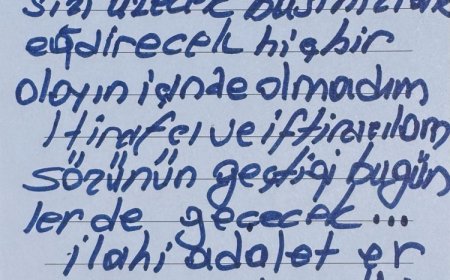 sizi üzecek
eğdirecek hiçbir
olayın içinde olmadım
İtirafcı ve iftiracıların
sözünün geçtiği bugün
lerde geçecek...
ilahi adalet er